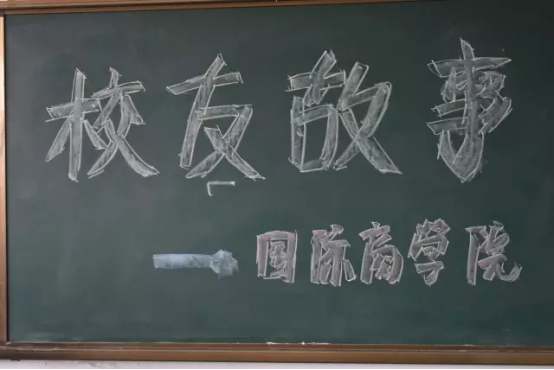 校友故事
——国际商学院